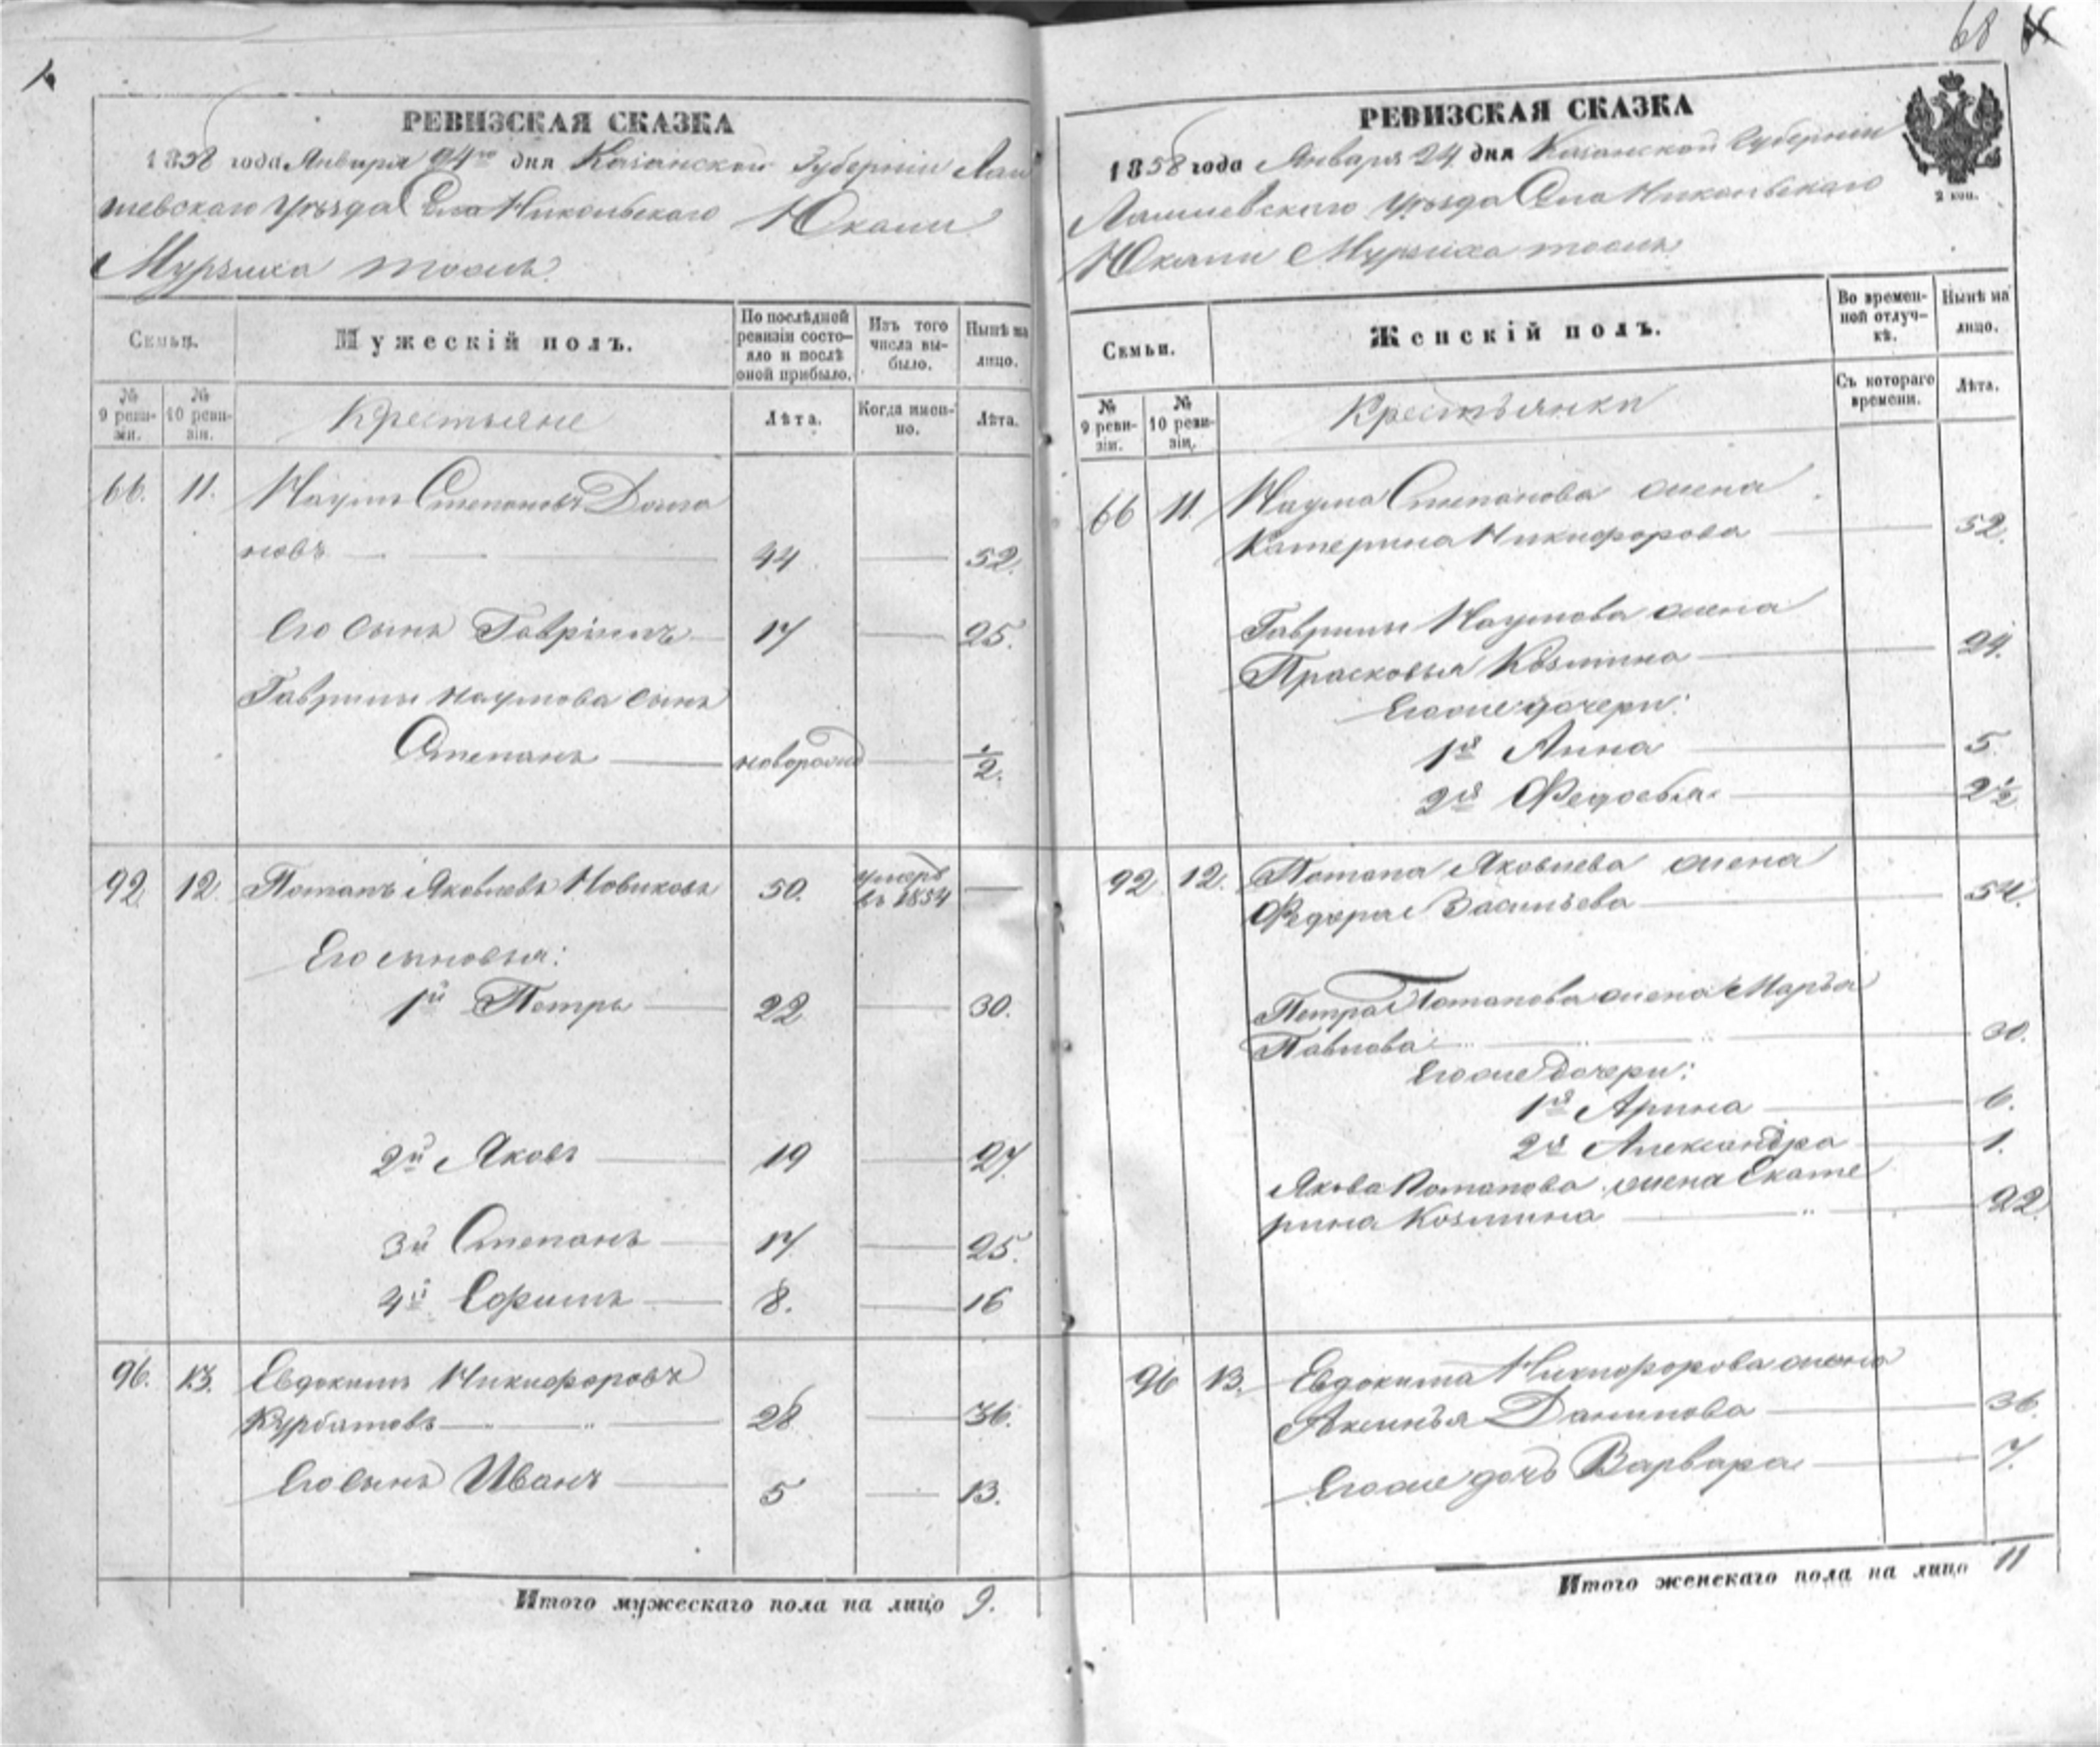 68
РЕВИЗСКАЯ СКАЗКА
1858 года Января 24го дня Казанской Губерніи Лаи
шевскаго Уѣзда Села Никольскаго Юкаши
Мурзиха тожъ.
Семьи.
Мужескій полъ.
По послѣдней ревизіи состояло и послѣ оной прибыло.
Изъ того числа выбыло.
Нынѣ на лицо.
№ 9 ревизіи.
№ 10 ревизіи.
Крестьяне
Лѣта.
Когда именно.
Лѣта.
66. 11. Наумъ Степановъ
новъ 44 52.
Его сынъ Гаврiилъ 17 25.
Гаврилы Наумова сынъ
Степанъ новорожд ½.
92 12. Потапъ Яковлевъ Новиковъ 50. умеръ въ 1854
Его сыновья:
1й Петръ 22 30.
2й Яковъ 19 27.
3й Степанъ 17 25.
4й Ефимъ 8. 16
96. 13. Евдокимъ Никифоровъ
Курбатовъ 28 36.
Его сынъ Иванъ 5 13.
Итого мужескаго пола на лицо 9.
РЕВИЗСКАЯ СКАЗКА
1858 года Января 24 дня Казанской Губерніи
Лаишевскаго Уѣзда Села Никольскаго
Юкаши Мурзиха тожъ
2 коп.
Семьи.
Женскій полъ.
Во временной отлучкѣ.
Нынѣ на лицо.
№ 9 ревизіи.
№ 10 ревизіи.
Крестьянки
Съ котораго времени.
Лѣта.
66 11. Наума Степанова жена
Катерина Никифорова 52.
Гаврилы Наумова жена
Прасковья Козмина 24.
Его же дочери:
1я Анна 5
2я Федосья 2½
92 12. Потапа Яковлева жена
Федора Васильева 54.
Петра Потапова жена Марья
Павлова 30.
Его же дочери:
1я Арина 6.
2я Александра 1.
Якова Потапова жена Екате
рина Козмина 22.
96 13. Евдокима Никифорова жена
Аксинья Данилова 36.
Его же дочь Варвара 7.
Итого женскаго пола на лицо 11